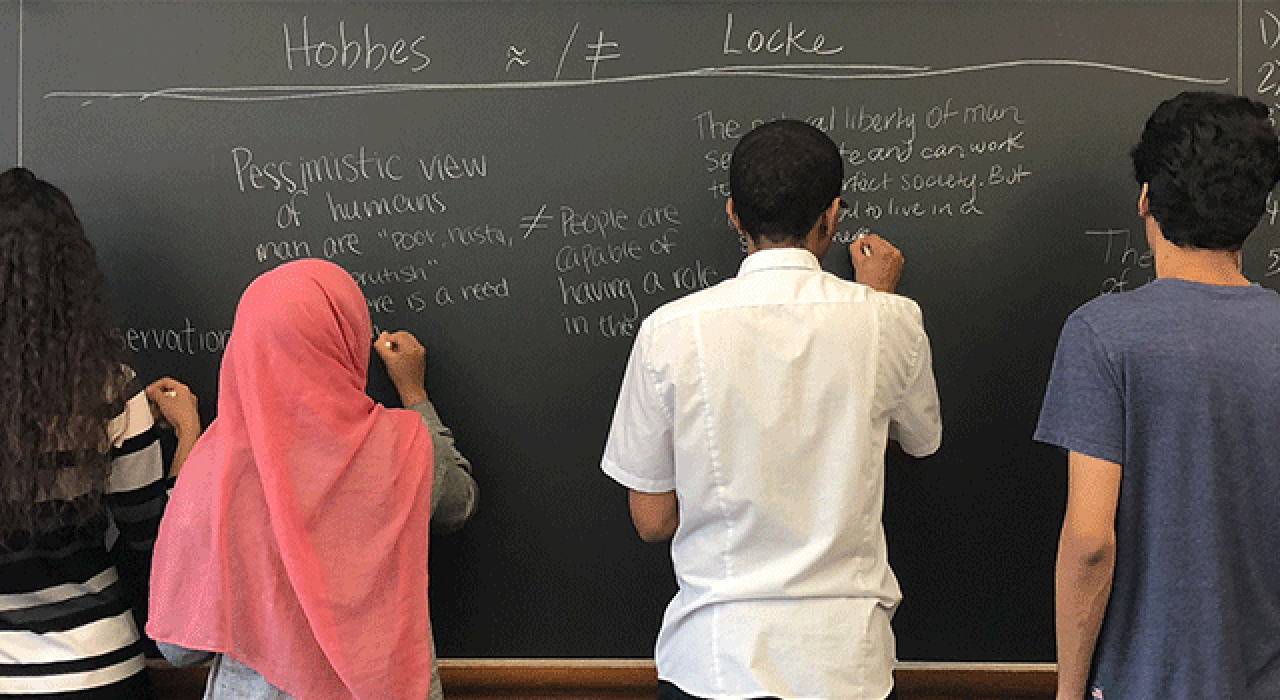 Hobbes ≈ / ≠ Locke
Pessimistic view
of humans
man are "poor, nasty,
brutish"
is a need
servation
≠ People are
capable of
having a role
in the
The natural liberty of man
and can work
society. But
to live in a
The
of
1)
2)
5